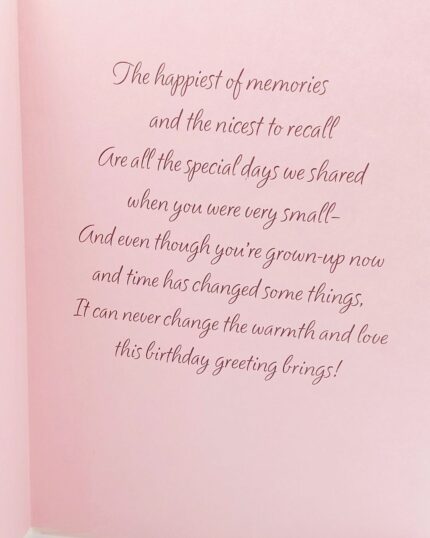 The happiest of memories
and the nicest to recall
Are all the special days we shared
when you were very small–
And even though you're grown-up now
and time has changed some things,
It can never change the warmth and love
this birthday greeting brings!